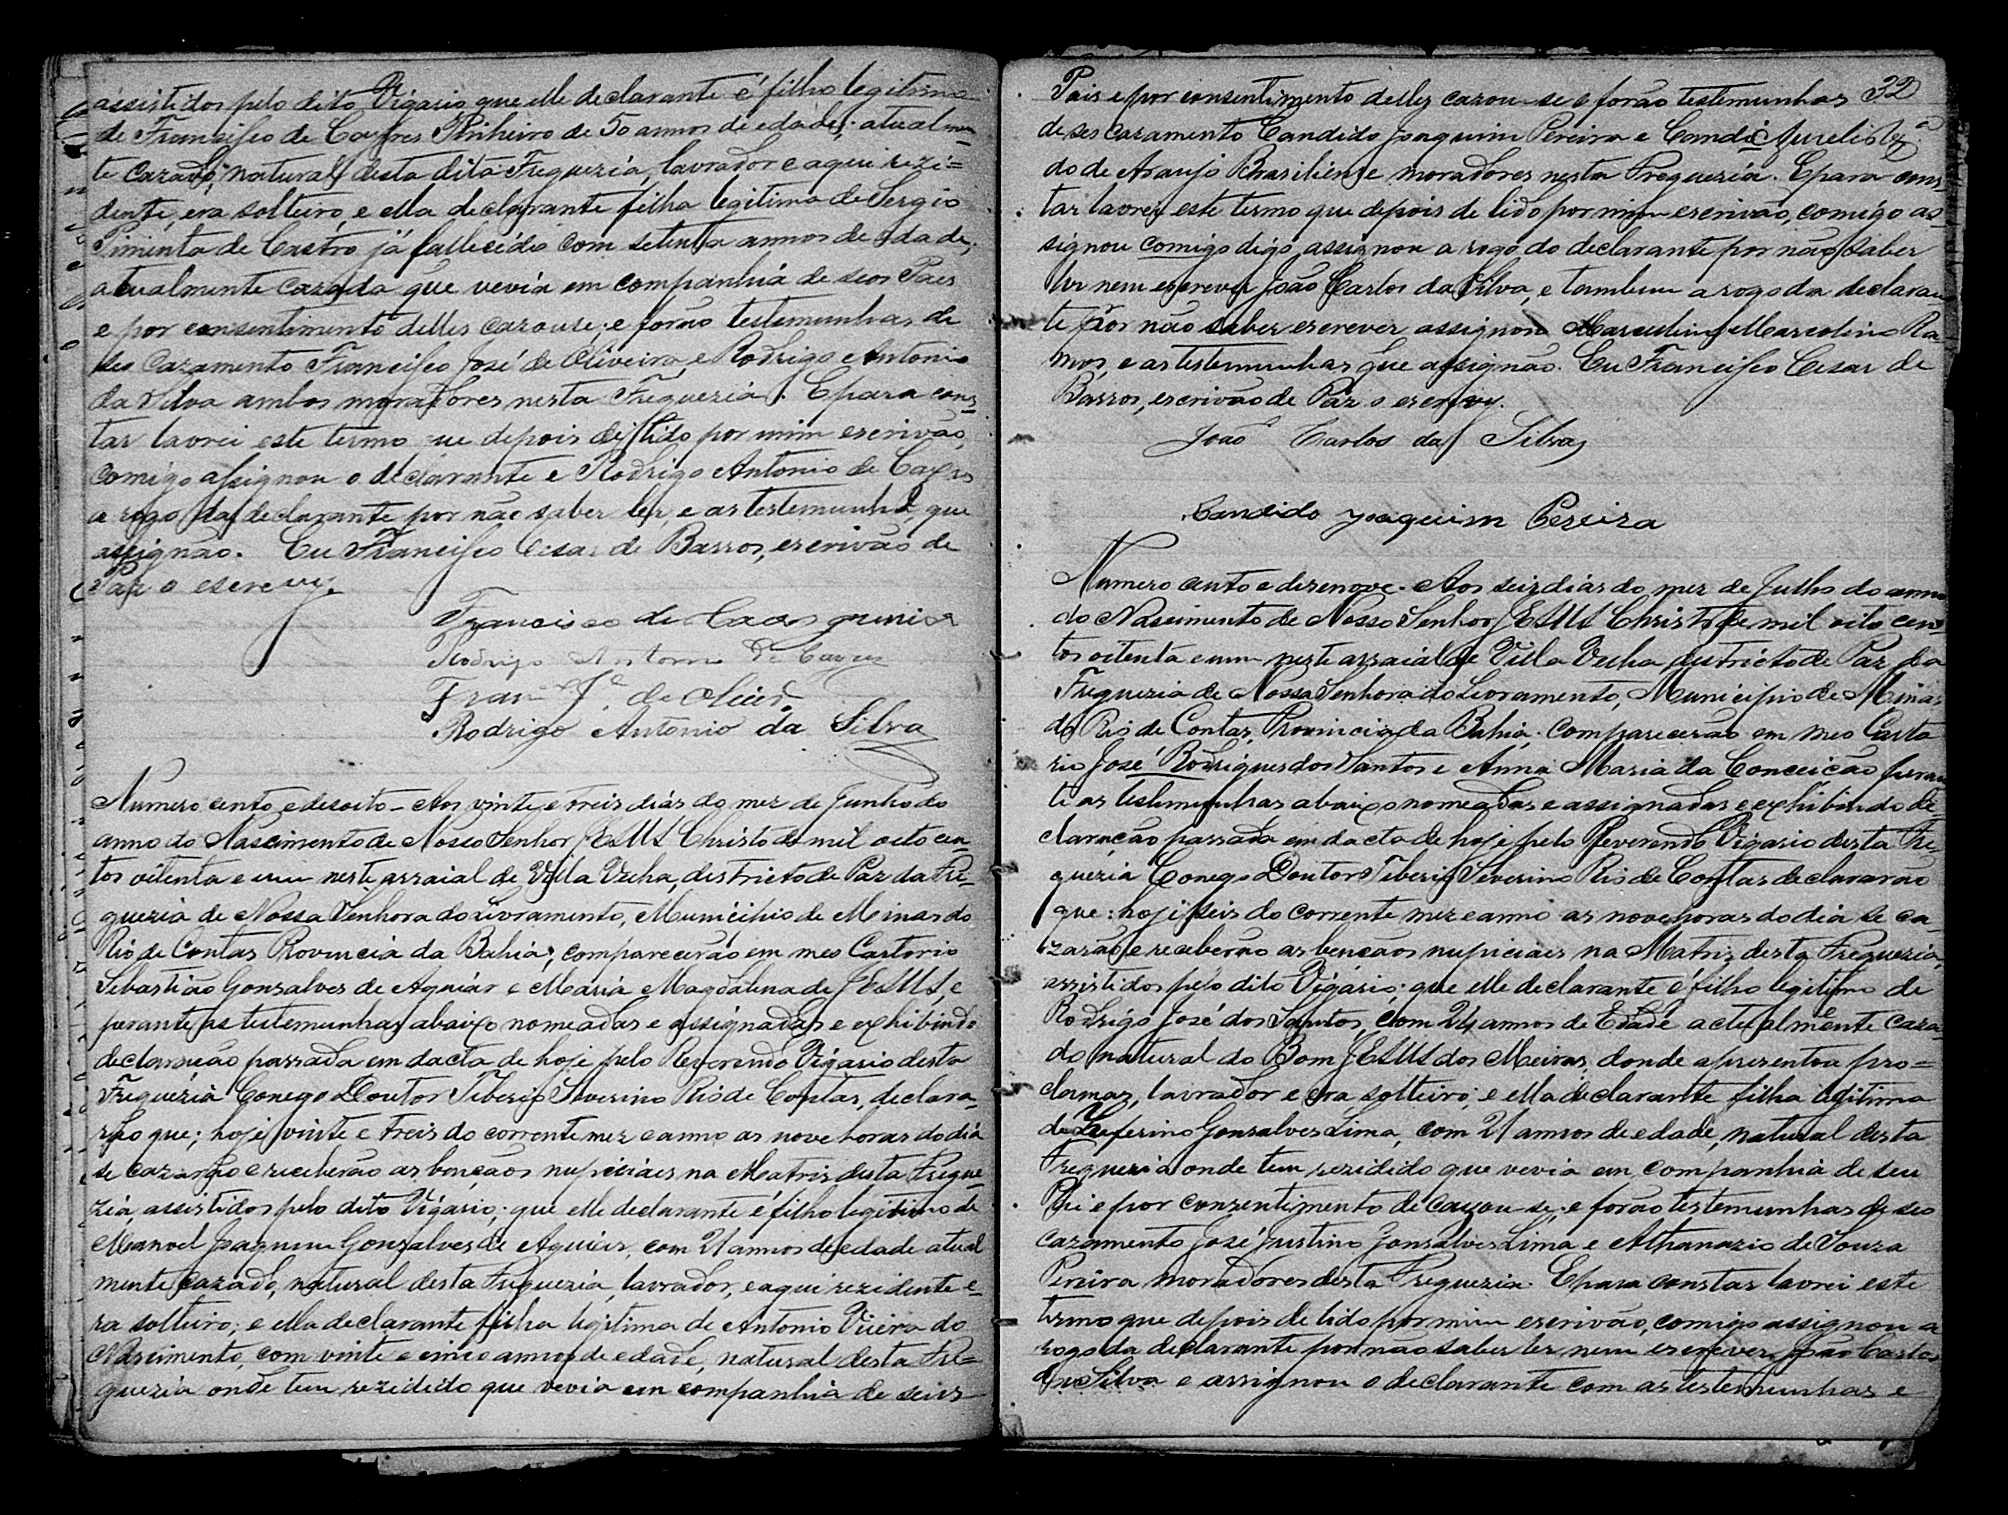 assistidos pelo dito Vigario que elle declarante é filho legitimo
de Francisco de Pinheiro de 50 annos de edade, atualmen
te cazado, natural desta dita Freguezia, lavrador e aqui rezi=
dente, era solteiro, e ella declarante filha legitima de Sergio
Pimenta de Castro já fallecido com setenta annos de idade,
atualmente cazada que vevia em companhia de seos Paes
e por consentimento delles cazouse; e forão testemunhas de
seo cazamento Francisco José de Oliveira e Rodrigo Antonio
da Silva ambos moradores nesta Freguezia. E para cons=
tar lavrei este termo que depois de lido por mim escrivão,
comigo assignou o declarante e Rodrigo Antonio de
a rogo da declarante por não saber ler, e as testemunhas que
assignão. Eu Francisco Cesar de Barros, escrivão de
Paz o escrevy.
Francisco de
Rodrigo Antonio de
Fran.co J.e de
Rodrigo Antonio da Silva
Numero cento e desoito - Aos vinte e treis dias do mez de Junho do
anno do Nascimento de Nosso Senhor JESUS Christo de mil oito cen
tos oitenta e um neste arraial de Villa Velha, destricto de Paz da Fre=
guezia de Nossa Senhora do Livramento, Municipio de Minas do
Rio de Contas Provincia da Bahia; comparecerão em meo Cartorio
Sebastião Gonsalves de Aguiar e Maria Magdalena de JESUS, e
perante as testemunhas abaixo nomeadas e assignadas e exhibindo
declaração passada em dacta de hoje pelo Reverendo Vigario desta
Freguezia Conego Doutor Tiberio Severino Rio de Contas, declara=
rão que; hoje vinte e treis do corrente mez e anno as nove horas do dia
se cazarão e receberão as bençãos nupiciaes na Matris desta Fregue
zia, assistidos pelo dito Vigario; que elle declarante é filho legitimo de
Manoel Joaquim Gonsalves de Aguiar, com 21 annos de edade atual
mente cazado, natural desta Freguezia, lavrador, e aqui rezidente e=
ra solteiro; e ella declarante filha legitima de Antonio Vieira do
Nascimento, com vinte e cinco annos de edade, natural desta Fre=
guezia onde tem rezidido que vevia em companhia de seus
32
Pais e por consentimento delles cazou-se e forão testemunhas
de seo cazamento Candido Joaquim Pereira e Candi Aurelio
do de Araujo Brasiliense moradores nesta Freguezia. E para cons
tar lavrei este termo que depois de lido por mim escrivão, comigo as
signou comigo digo, assignou a rogo do declarante por não saber
ler nem escrever João Carlos da Silva, e tambem a rogo da declaran
te por não saber escrever assignou Marcolino Ra=
mos, e as testemunhas que assignão. Eu Francisco Cesar de
Barros, escrivão de Paz o escrevy.
João Carlos da Silva
Candido Joaquim Pereira
Numero cento e desenove. Aos seis dias do mez de Julho do anno
do Nascimento de Nosso Senhor JESUS Christo de mil oito cen=
tos oitenta e um neste arraial de Villa Velha, destricto de Paz da
Freguezia de Nossa Senhora do Livramento, Municipio de Minas
do Rio de Contas, Provincia da Bahia; comparecerão em meo Carto
rio José Rodrigues dos Santos e Anna Maria da Conceicão peran
te as testemunhas abaixo nomeadas e assignadas e exhibindo de
claração passada em dacta de hoje pelo Reverendo Vigario desta Fre
guezia Conego Doutor Tiberio Severino Rio de Contas declararão
que: hoje seis do corrente mez e anno as nove horas do dia se ca=
zarão e receberão as bençãos nupiciaes na Matriz desta Freguezia,
assistidos pelo dito Vigario; que elle declarante é filho legitimo de
Rodrigo José dos Santos, com 24 annos de Edade actualmente caza
do natural do Bom JESUS dos Meiras, donde apresentou pro=
clamas, lavrador e era solteiro; e ella declarante filha legitima
de Zeferino Gonsalves Lima, com 21 annos de edade, natural desta
Freguezia onde tem rezidido que vevia em companhia de seu
Pai e por conzentimento de cazou-se; e forão testemunhas de seo
cazamento José Justino Gonsalves Lima e Athanazio de Souza
Pereira moradores desta Freguezia. E para constar lavrei este
termo que depois de lido por mim escrivão, comigo assignou a
rogo da declarante por não saber ler nem escrever João Carlos
da Silva e assignou o declarante com as testemunhas e